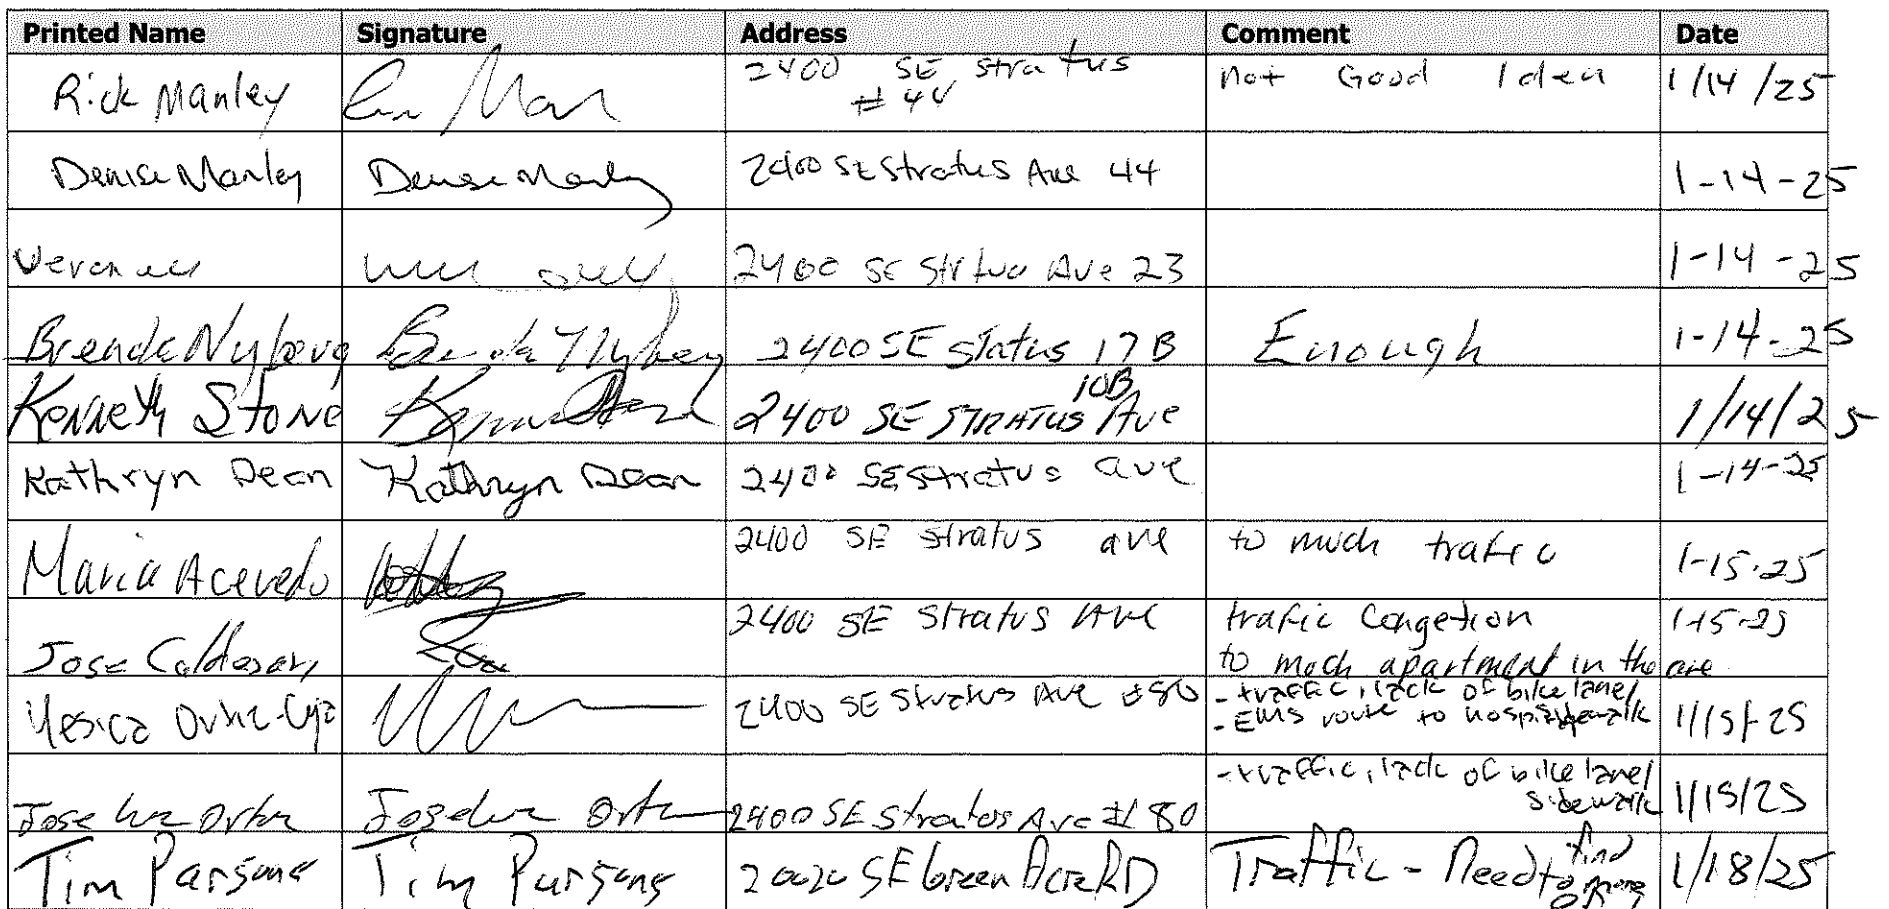 Printed Name Signature Address Comment Date
Rick Manley 2400 SE stratus #44 not Good Idea 1/14/25
Denise Manley Denise Manley 2400 SE Stratus Ave 44 1-14-25
2400 SE Ave 23 1-14-25
Brenda Nyberg Brenda Nyberg 2400 SE Status 17B Enough 1-14-25
Kenneth Stone Kenneth Stone 2400 SE STRATUS Ave 10B 1/14/25
Kathryn Dean Kathryn Dean 2400 SE Stratus ave 1-14-25
Maria Acevedo 2400 SE Stratus ave to much trafic 1-15-25
Jose 2400 SE Stratus Ave trafic Congetion 1-15-25
to moch apartment in the are
Yesica 2400 SE Stratus Ave #80 - traffic, lack of bike lane/ sidewalk 1/15/25
- EMS route to hospital
Jose Ortiz 2400 SE Stratus Ave #80 - traffic, lack of bike lane/ 1/15/25
sidewalk
Tim Parsons Tim Parsons SE Green Acre RD Traffic - Need to find 1/18/25